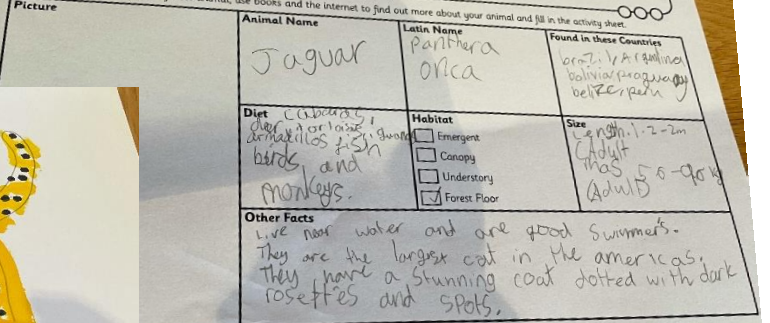 use books and the internet to find out more about your animal and fill in the activity sheet.
Picture
Animal Name
Jaguar
Latin Name
panthera
onca
Found in these Countries
brazil, Argentina
bolivia, praguay
belize, peru
Diet
deer, tortoise, iguana
armadillos fish
birds and
monkeys.
Habitat
Emergent
Canopy
Understory
Forest Floor
Size
Length: 1.2-2m
(Adult
mas 56-90 kg
(Adult)
Other Facts
Live near water and are good swimmers.
They are the largest cat in the americas.
They have a stunning coat dotted with dark
rosettes and spots.